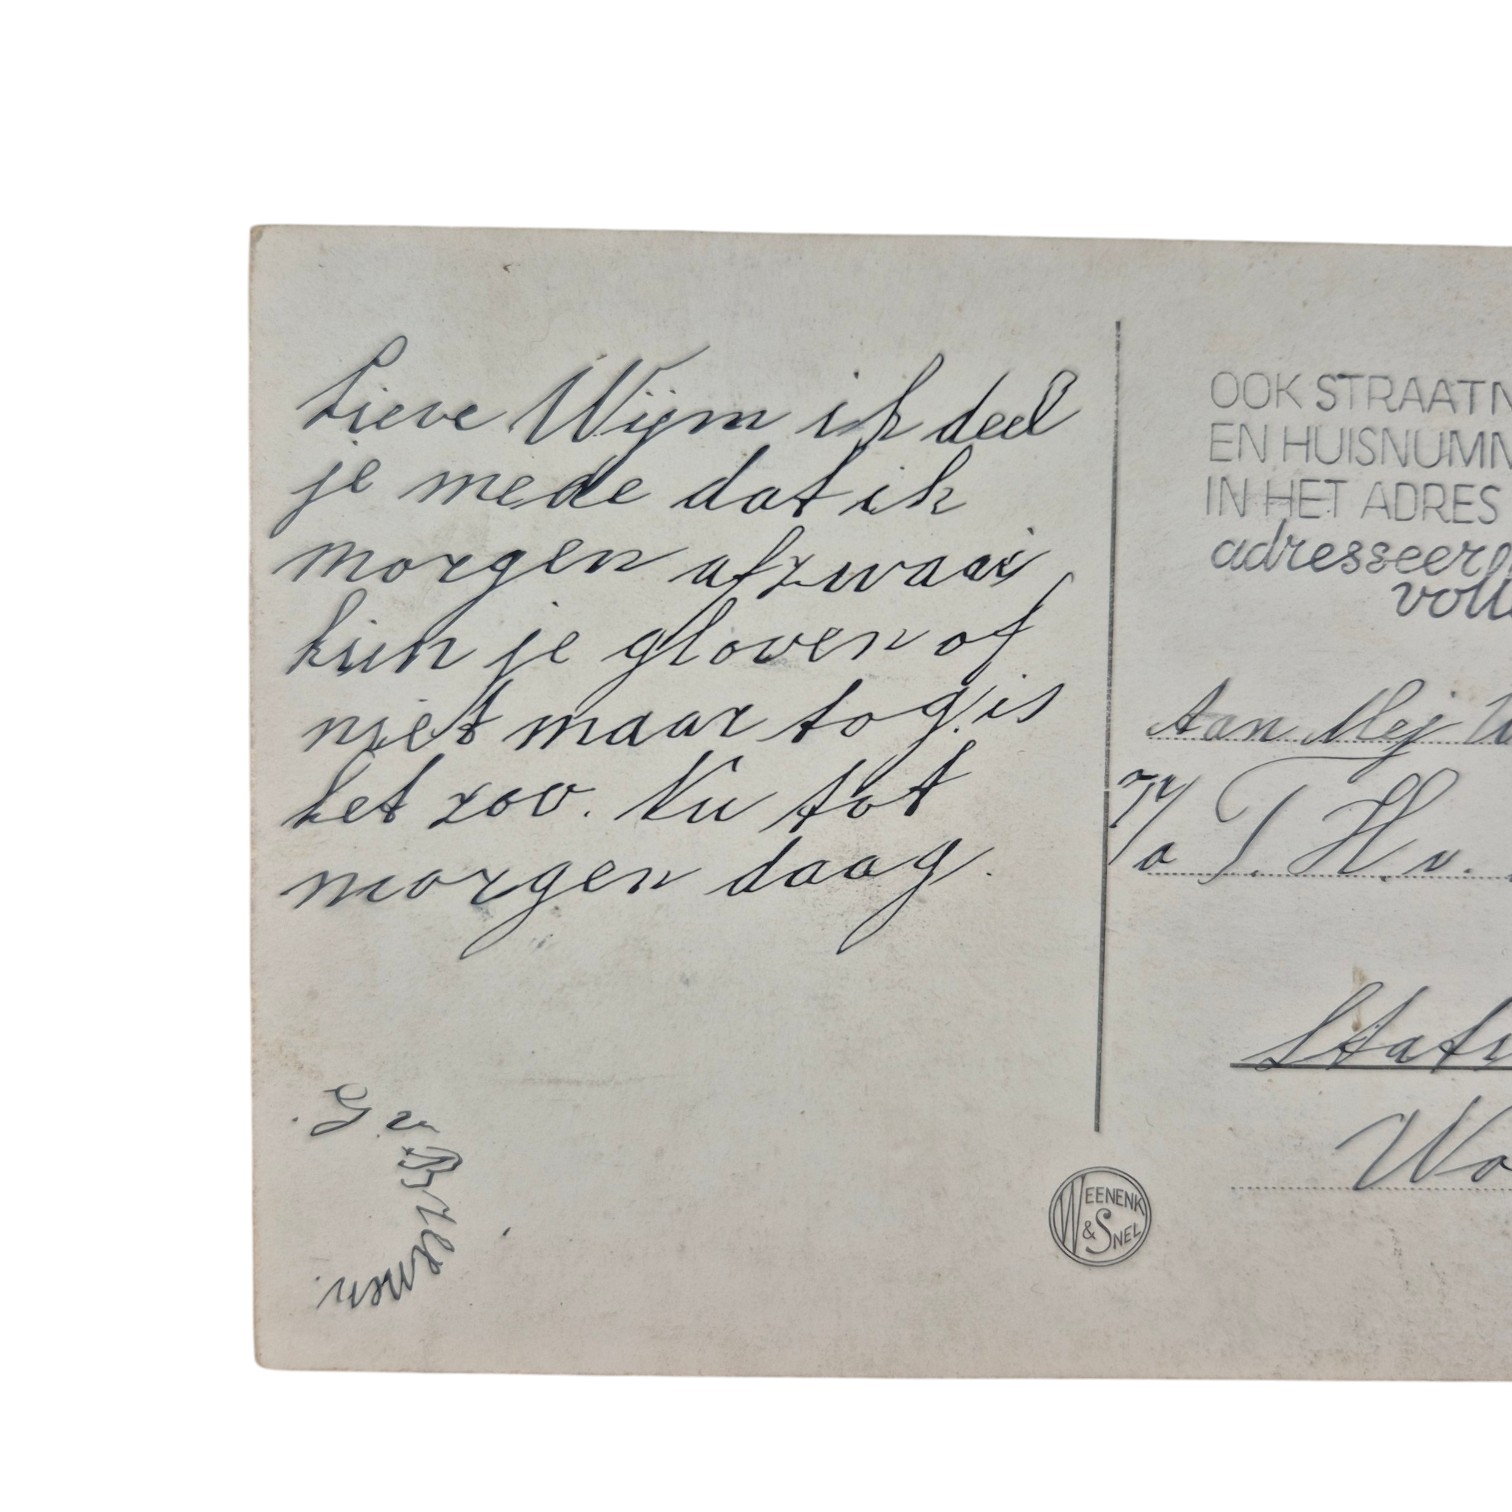 Lieve Wijm ik deel
je mede dat ik
morgen afzwaai
kun je gloven of
niet maar tog is
het zoo. Nu tot
morgen daag.
G v
OOK STRAATN
EN HUISNUMM
IN HET ADRES
adresseer
voll
Aan Mej
T. H. v.
Stat
Wo
WEENENK
& SNEL